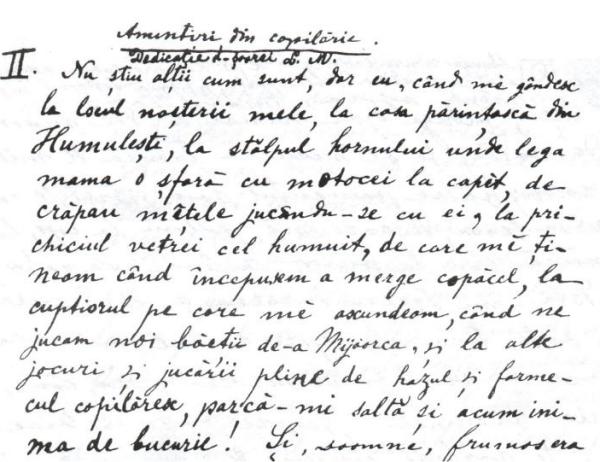 Amintiri din copilărie.
Dedicație d-șoarei L. M.
II. Nu știu alții cum sunt, dar eu, când mĕ gândesc
la locul nașterii mele, la casa părintască din
Humulești, la stâlpul hornului unde lega
mama o sfară cu motocei la capĕt, de
crăpau mâțele jucându-se cu ei, la pri-
chiciul vetrei cel humuit, de care mĕ ți-
neam când începusem a merge copăcel, la
cuptiorul pe care mĕ ascundeam, când ne
jucam noi băeții de-a Mijoarca, și la alte
jocuri și jucării pline de hazul și farme-
cul copilăresc, parcă-mi saltă și acum ini-
ma de bucurie! Și, doamne, frumos era